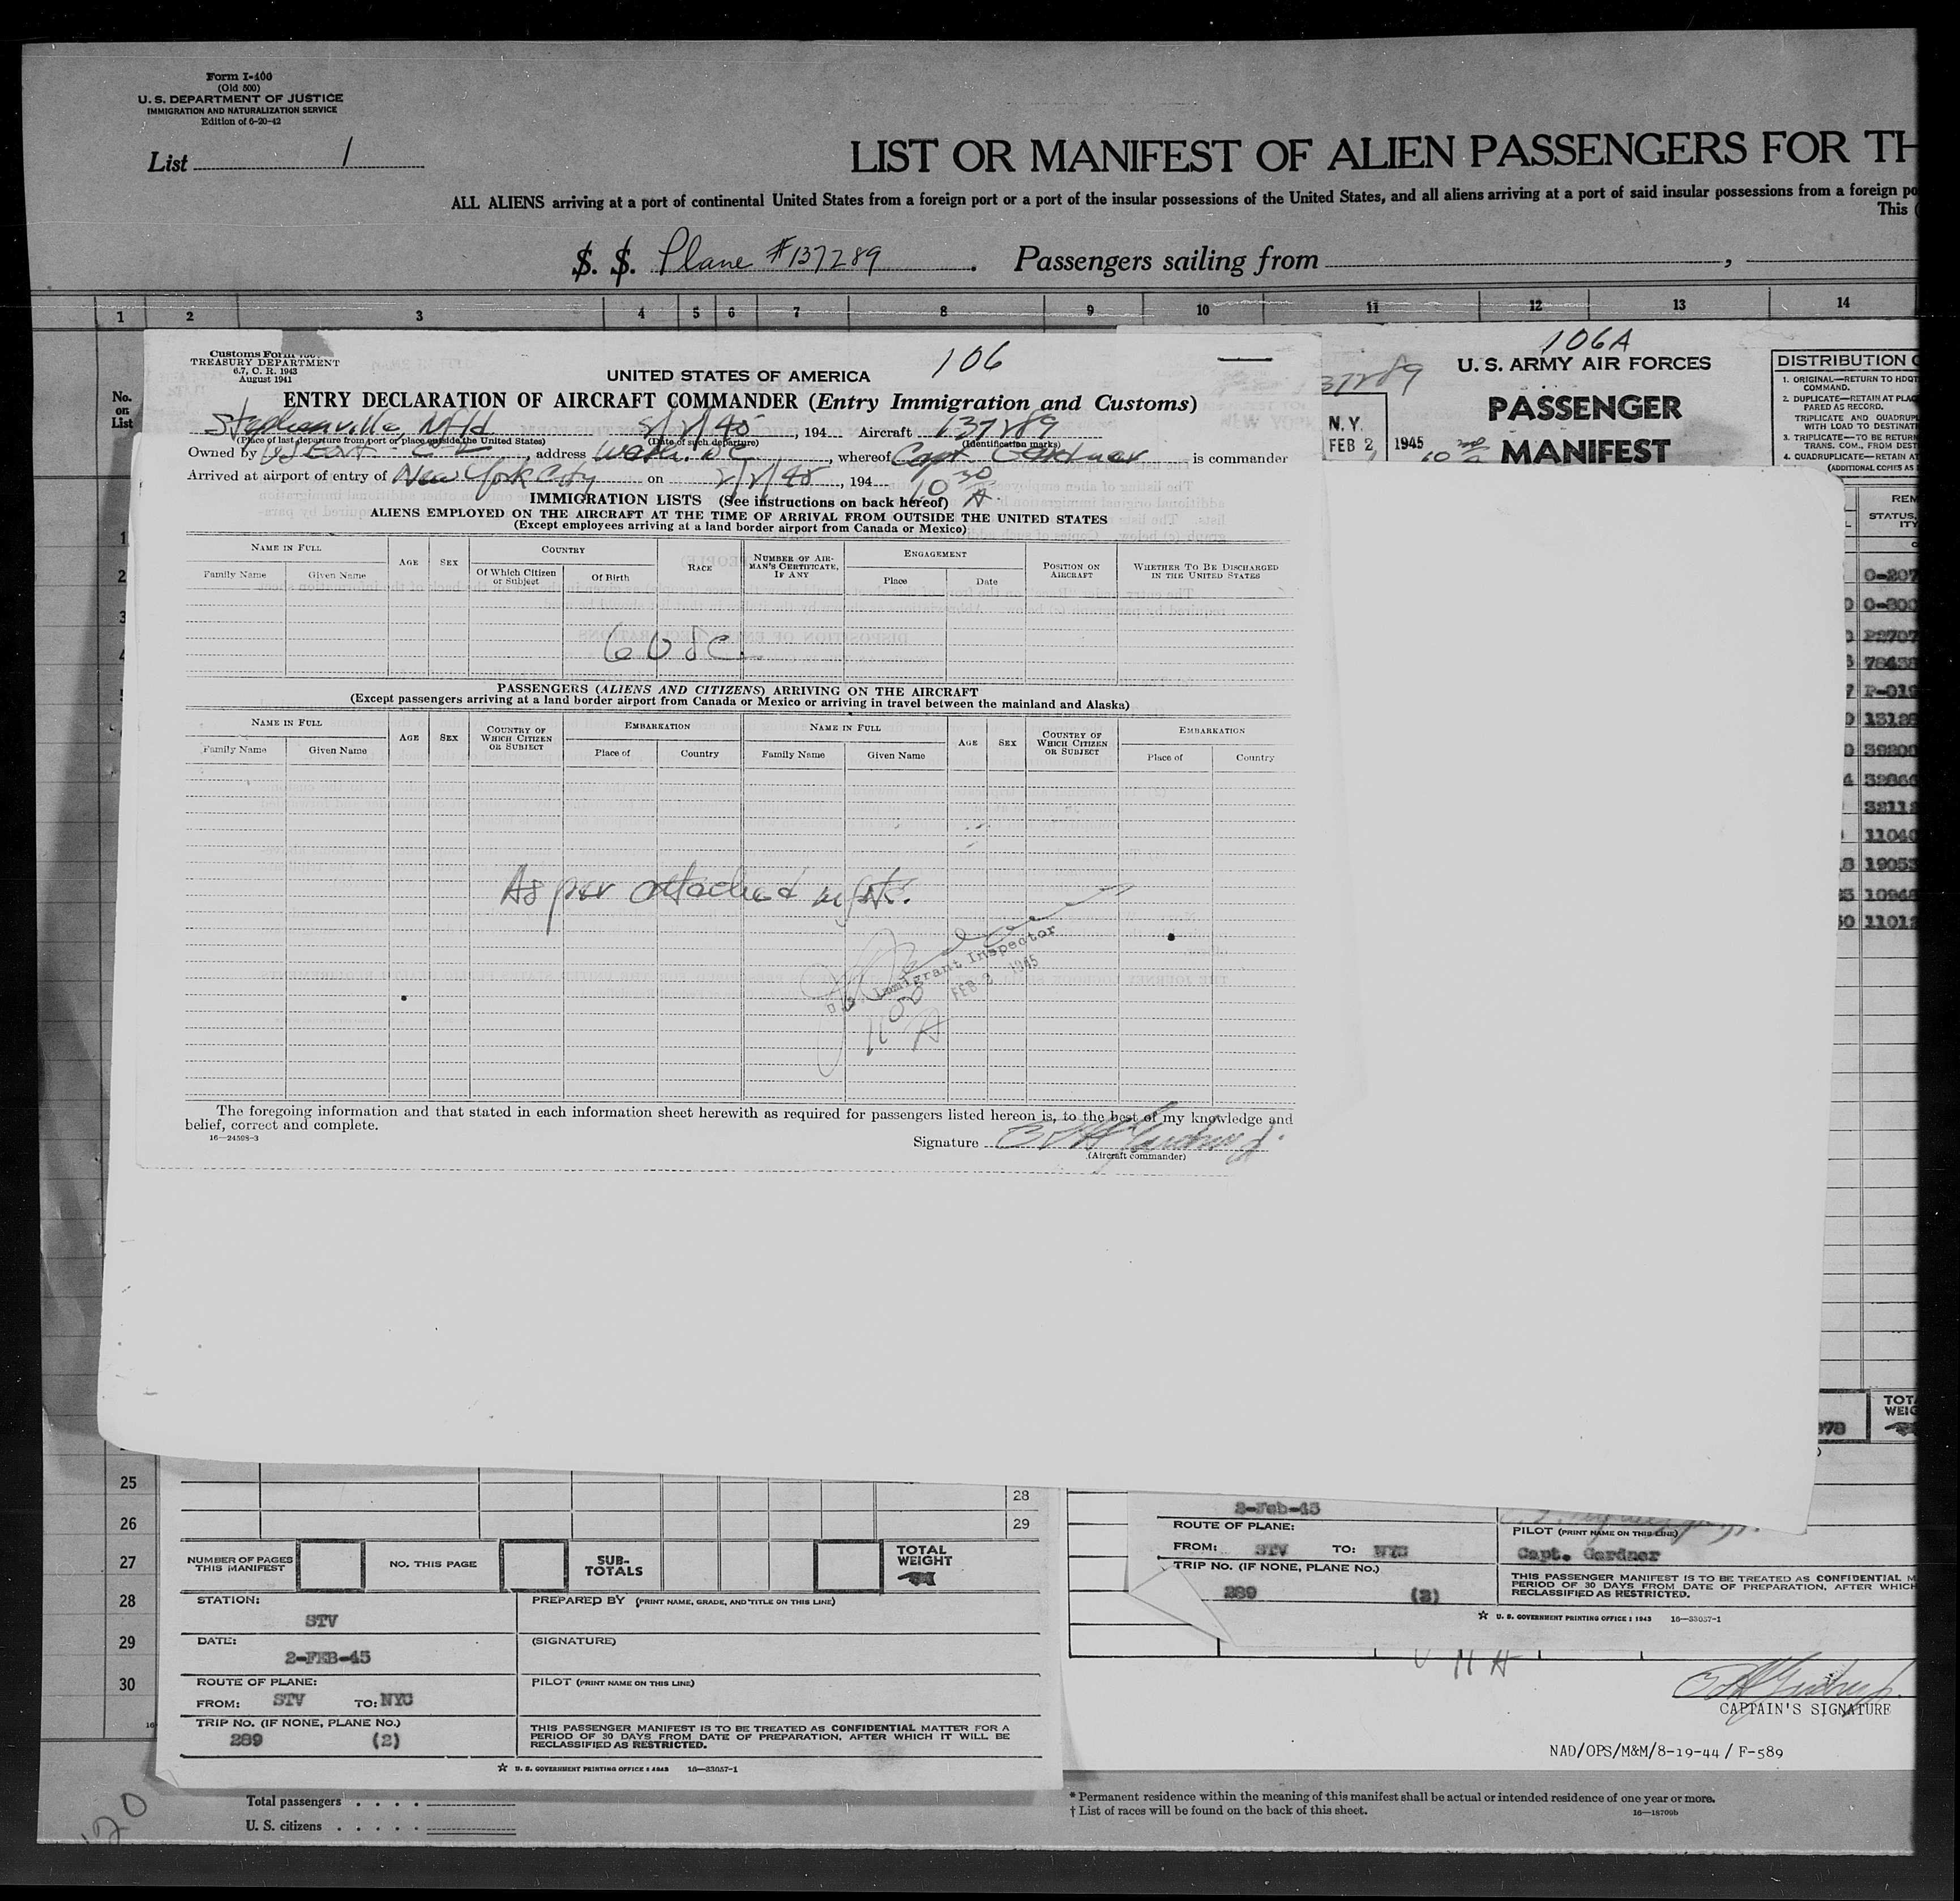 Form I-400
(Old 500)
U. S. DEPARTMENT OF JUSTICE
IMMIGRATION AND NATURALIZATION SERVICE
Edition of 6-20-42
List 1
LIST OR MANIFEST OF ALIEN PASSENGERS FOR TH
ALL ALIENS arriving at a port of continental United States from a foreign port or a port of the insular possessions of the United States, and all aliens arriving at a port of said insular possessions from a foreign po
This (
S. S. Plane #137289. Passengers sailing from ,
1 2 3 4 5 6 7 8 9 10 11 12 13 14
No. on List
Customs Form
TREASURY DEPARTMENT
6.7, C. R. 1943
August 1941
106
UNITED STATES OF AMERICA
ENTRY DECLARATION OF AIRCRAFT COMMANDER (Entry Immigration and Customs)
Stephenville, Nfld 2/2/45, 194 Aircraft 137289
(Place of last departure from port or place outside the United States) (Date of such departure) (Identification marks)
Owned by , address Wash. DC, whereof Capt Gardner is commander
Arrived at airport of entry of New York City on 2/2/45, 194 10 30 A.
IMMIGRATION LISTS (See instructions on back hereof)
ALIENS EMPLOYED ON THE AIRCRAFT AT THE TIME OF ARRIVAL FROM OUTSIDE THE UNITED STATES
(Except employees arriving at a land border airport from Canada or Mexico)
NAME IN FULL AGE SEX COUNTRY RACE NUMBER OF AIRMAN'S CERTIFICATE, IF ANY ENGAGEMENT POSITION ON AIRCRAFT WHETHER TO BE DISCHARGED IN THE UNITED STATES
Family Name Given Name Of Which Citizen or Subject Of Birth Place Date
6 USC.
PASSENGERS (ALIENS AND CITIZENS) ARRIVING ON THE AIRCRAFT
(Except passengers arriving at a land border airport from Canada or Mexico or arriving in travel between the mainland and Alaska)
NAME IN FULL AGE SEX COUNTRY OF WHICH CITIZEN OR SUBJECT EMBARKATION NAME IN FULL AGE SEX COUNTRY OF WHICH CITIZEN OR SUBJECT EMBARKATION
Family Name Given Name Place of Country Family Name Given Name Place of Country
As per attached mfst.
U.S. Immigrant Inspector
FEB 2 1945
The foregoing information and that stated in each information sheet herewith as required for passengers listed hereon is, to the best of my knowledge and
belief, correct and complete.
16—24598-3
Signature
(Aircraft commander)
106A
37289
U. S. ARMY AIR FORCES
PASSENGER
MANIFEST
N.Y.
FEB 2 1945
DISTRIBUTION O
1. ORIGINAL—RETURN TO HDQT
COMMAND.
2. DUPLICATE—RETAIN AT PLAC
PARED AS RECORD.
TRIPLICATE AND QUADRUPL
WITH LOAD TO DESTINAT
3. TRIPLICATE—TO BE RETURN
TRANS. COM., FROM DEST
4. QUADRUPLICATE—RETAIN AT
(ADDITIONAL COPIES AS
REM
STATUS,
ITY
O-207
O-800
P2707
78438
P-019
13125
39200
32866
32112
11040
19053
10948
11012
TOTA
WEIG
25
26
27
28
29
30
28
29
NUMBER OF PAGES THIS MANIFEST NO. THIS PAGE SUB-TOTALS TOTAL WEIGHT
STATION: STV
PREPARED BY (PRINT NAME, GRADE, AND TITLE ON THIS LINE)
DATE: 2-FEB-45
(SIGNATURE)
ROUTE OF PLANE:
FROM: STV TO: NYC
PILOT (PRINT NAME ON THIS LINE)
TRIP NO. (IF NONE, PLANE NO.)
289 (2)
THIS PASSENGER MANIFEST IS TO BE TREATED AS CONFIDENTIAL MATTER FOR A
PERIOD OF 30 DAYS FROM DATE OF PREPARATION, AFTER WHICH IT WILL BE
RECLASSIFIED AS RESTRICTED.
☆ U. S. GOVERNMENT PRINTING OFFICE : 1943 16—33057-1
2-Feb-45
ROUTE OF PLANE:
FROM: STV TO: NYC
TRIP NO. (IF NONE, PLANE NO.)
289 (2)
PILOT (PRINT NAME ON THIS LINE)
Capt. Gardner
THIS PASSENGER MANIFEST IS TO BE TREATED AS CONFIDENTIAL M
PERIOD OF 30 DAYS FROM DATE OF PREPARATION, AFTER WHICH
RECLASSIFIED AS RESTRICTED.
☆ U. S. GOVERNMENT PRINTING OFFICE : 1943 16—33057-1
CAPTAIN'S SIGNATURE
NAD/OPS/M&M/8-19-44/ F-589
Total passengers . . . .
U. S. citizens . . . . .
* Permanent residence within the meaning of this manifest shall be actual or intended residence of one year or more.
† List of races will be found on the back of this sheet.
16—18709b
120